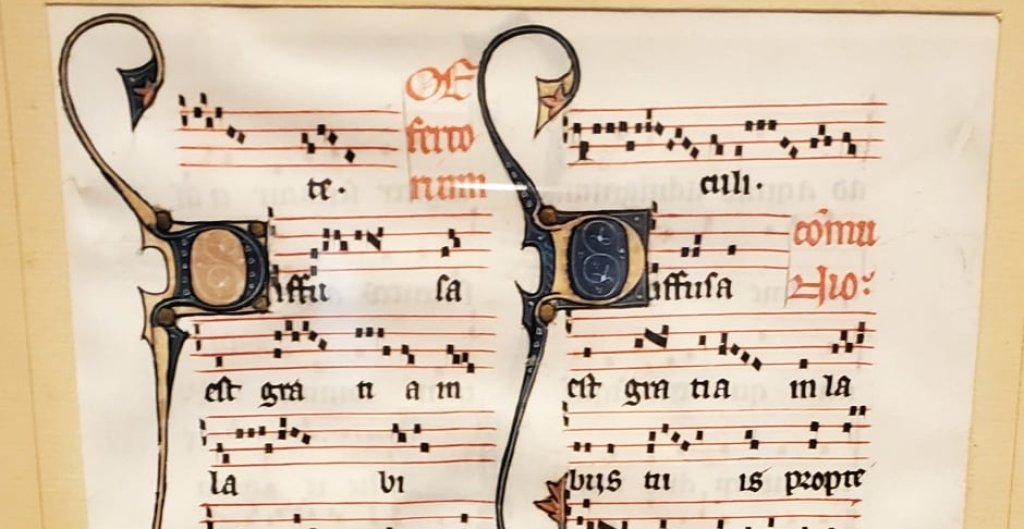 OF
ferto
te.
rium
Diffu sa
est gra ti a in
la bi
culi.
Diffusa
cōmu
nio:
est gra tia in la
bijs tu is propte